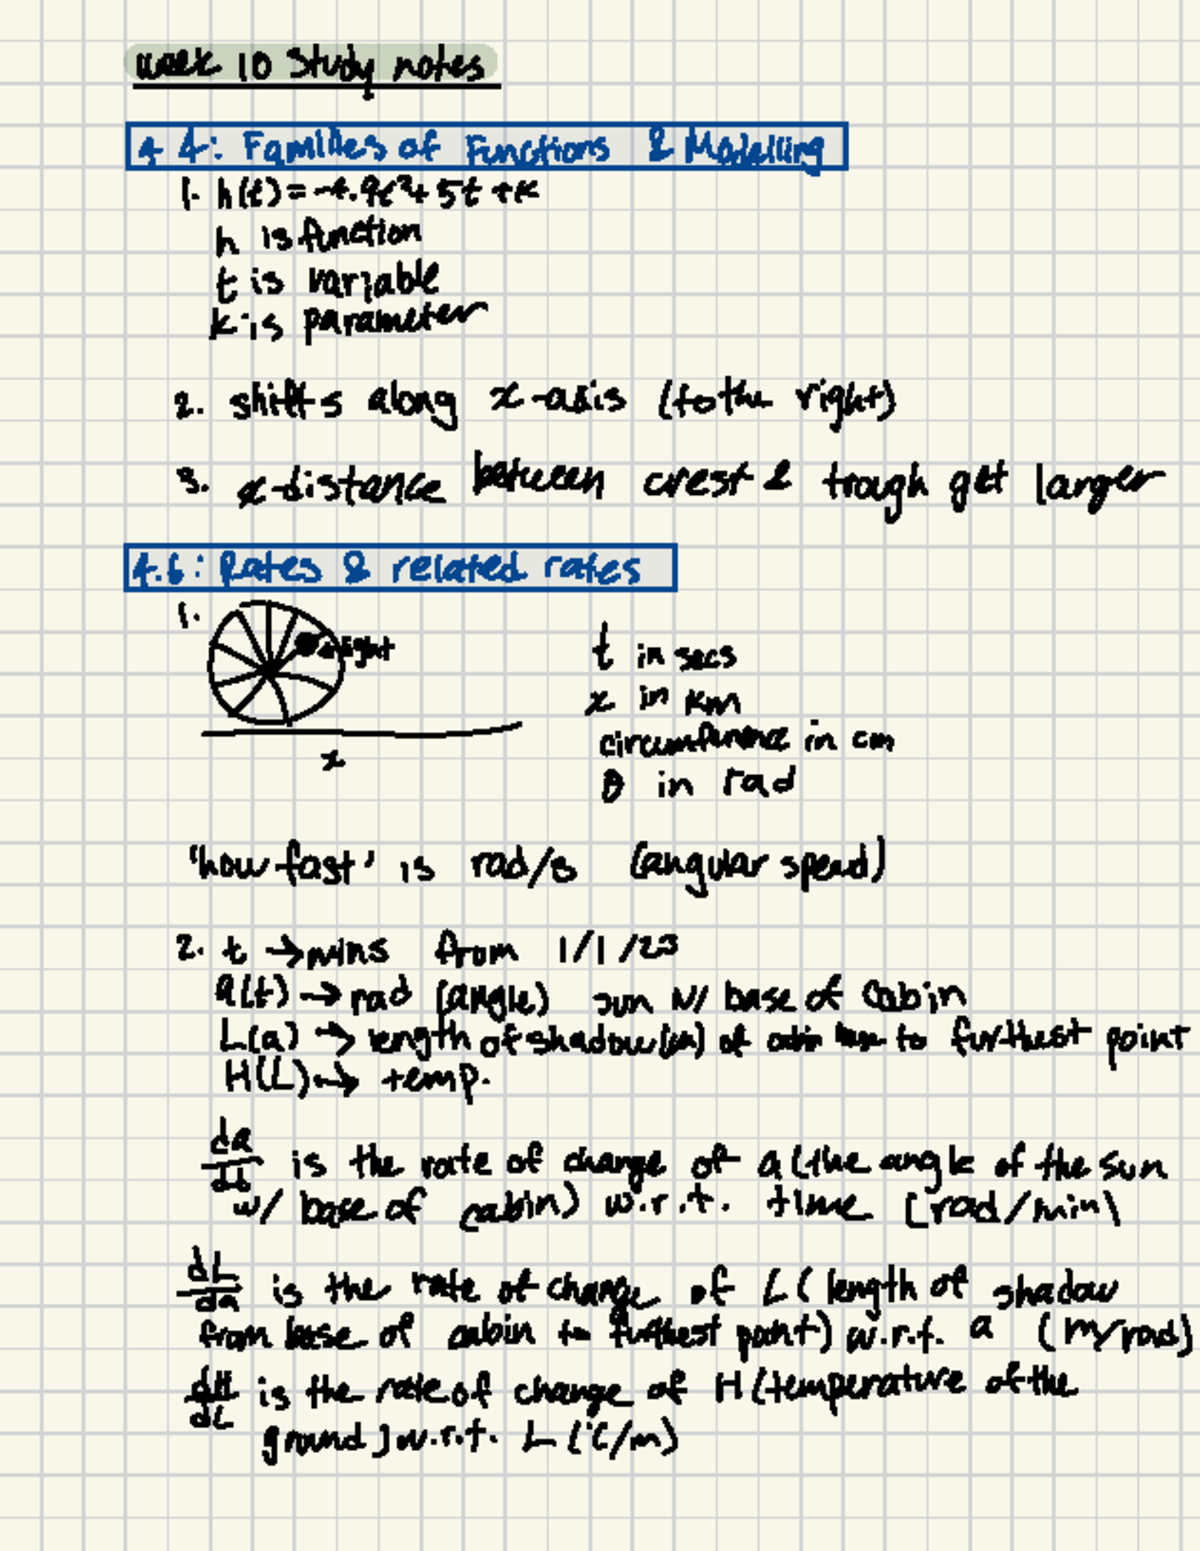 Week 10 Study notes
4.4: Families of Functions & Modelling
1. h(t) = -4.9t²+5t+k
h is function
t is variable
k is parameter
2. shifts along x-axis (to the right)
3. x-distance between crest & trough get larger
4.6: Rates & related rates
1.
light
x
t in secs
x in km
circumference in cm
θ in rad
'how fast' is rad/s (angular speed)
2. t → mins from 1/1/23
a(t) → rad (angle) sun w/ base of cabin
L(a) → length of shadow (m) of cabin base to furthest point
H(L) → temp.
da/dt is the rate of change of a (the angle of the sun
w/ base of cabin) w.r.t. time [rad/min]
dL/da is the rate of change of L (length of shadow
from base of cabin to furthest point) w.r.t. a (m/rad)
dH/dL is the rate of change of H (temperature of the
ground) w.r.t. L (°C/m)